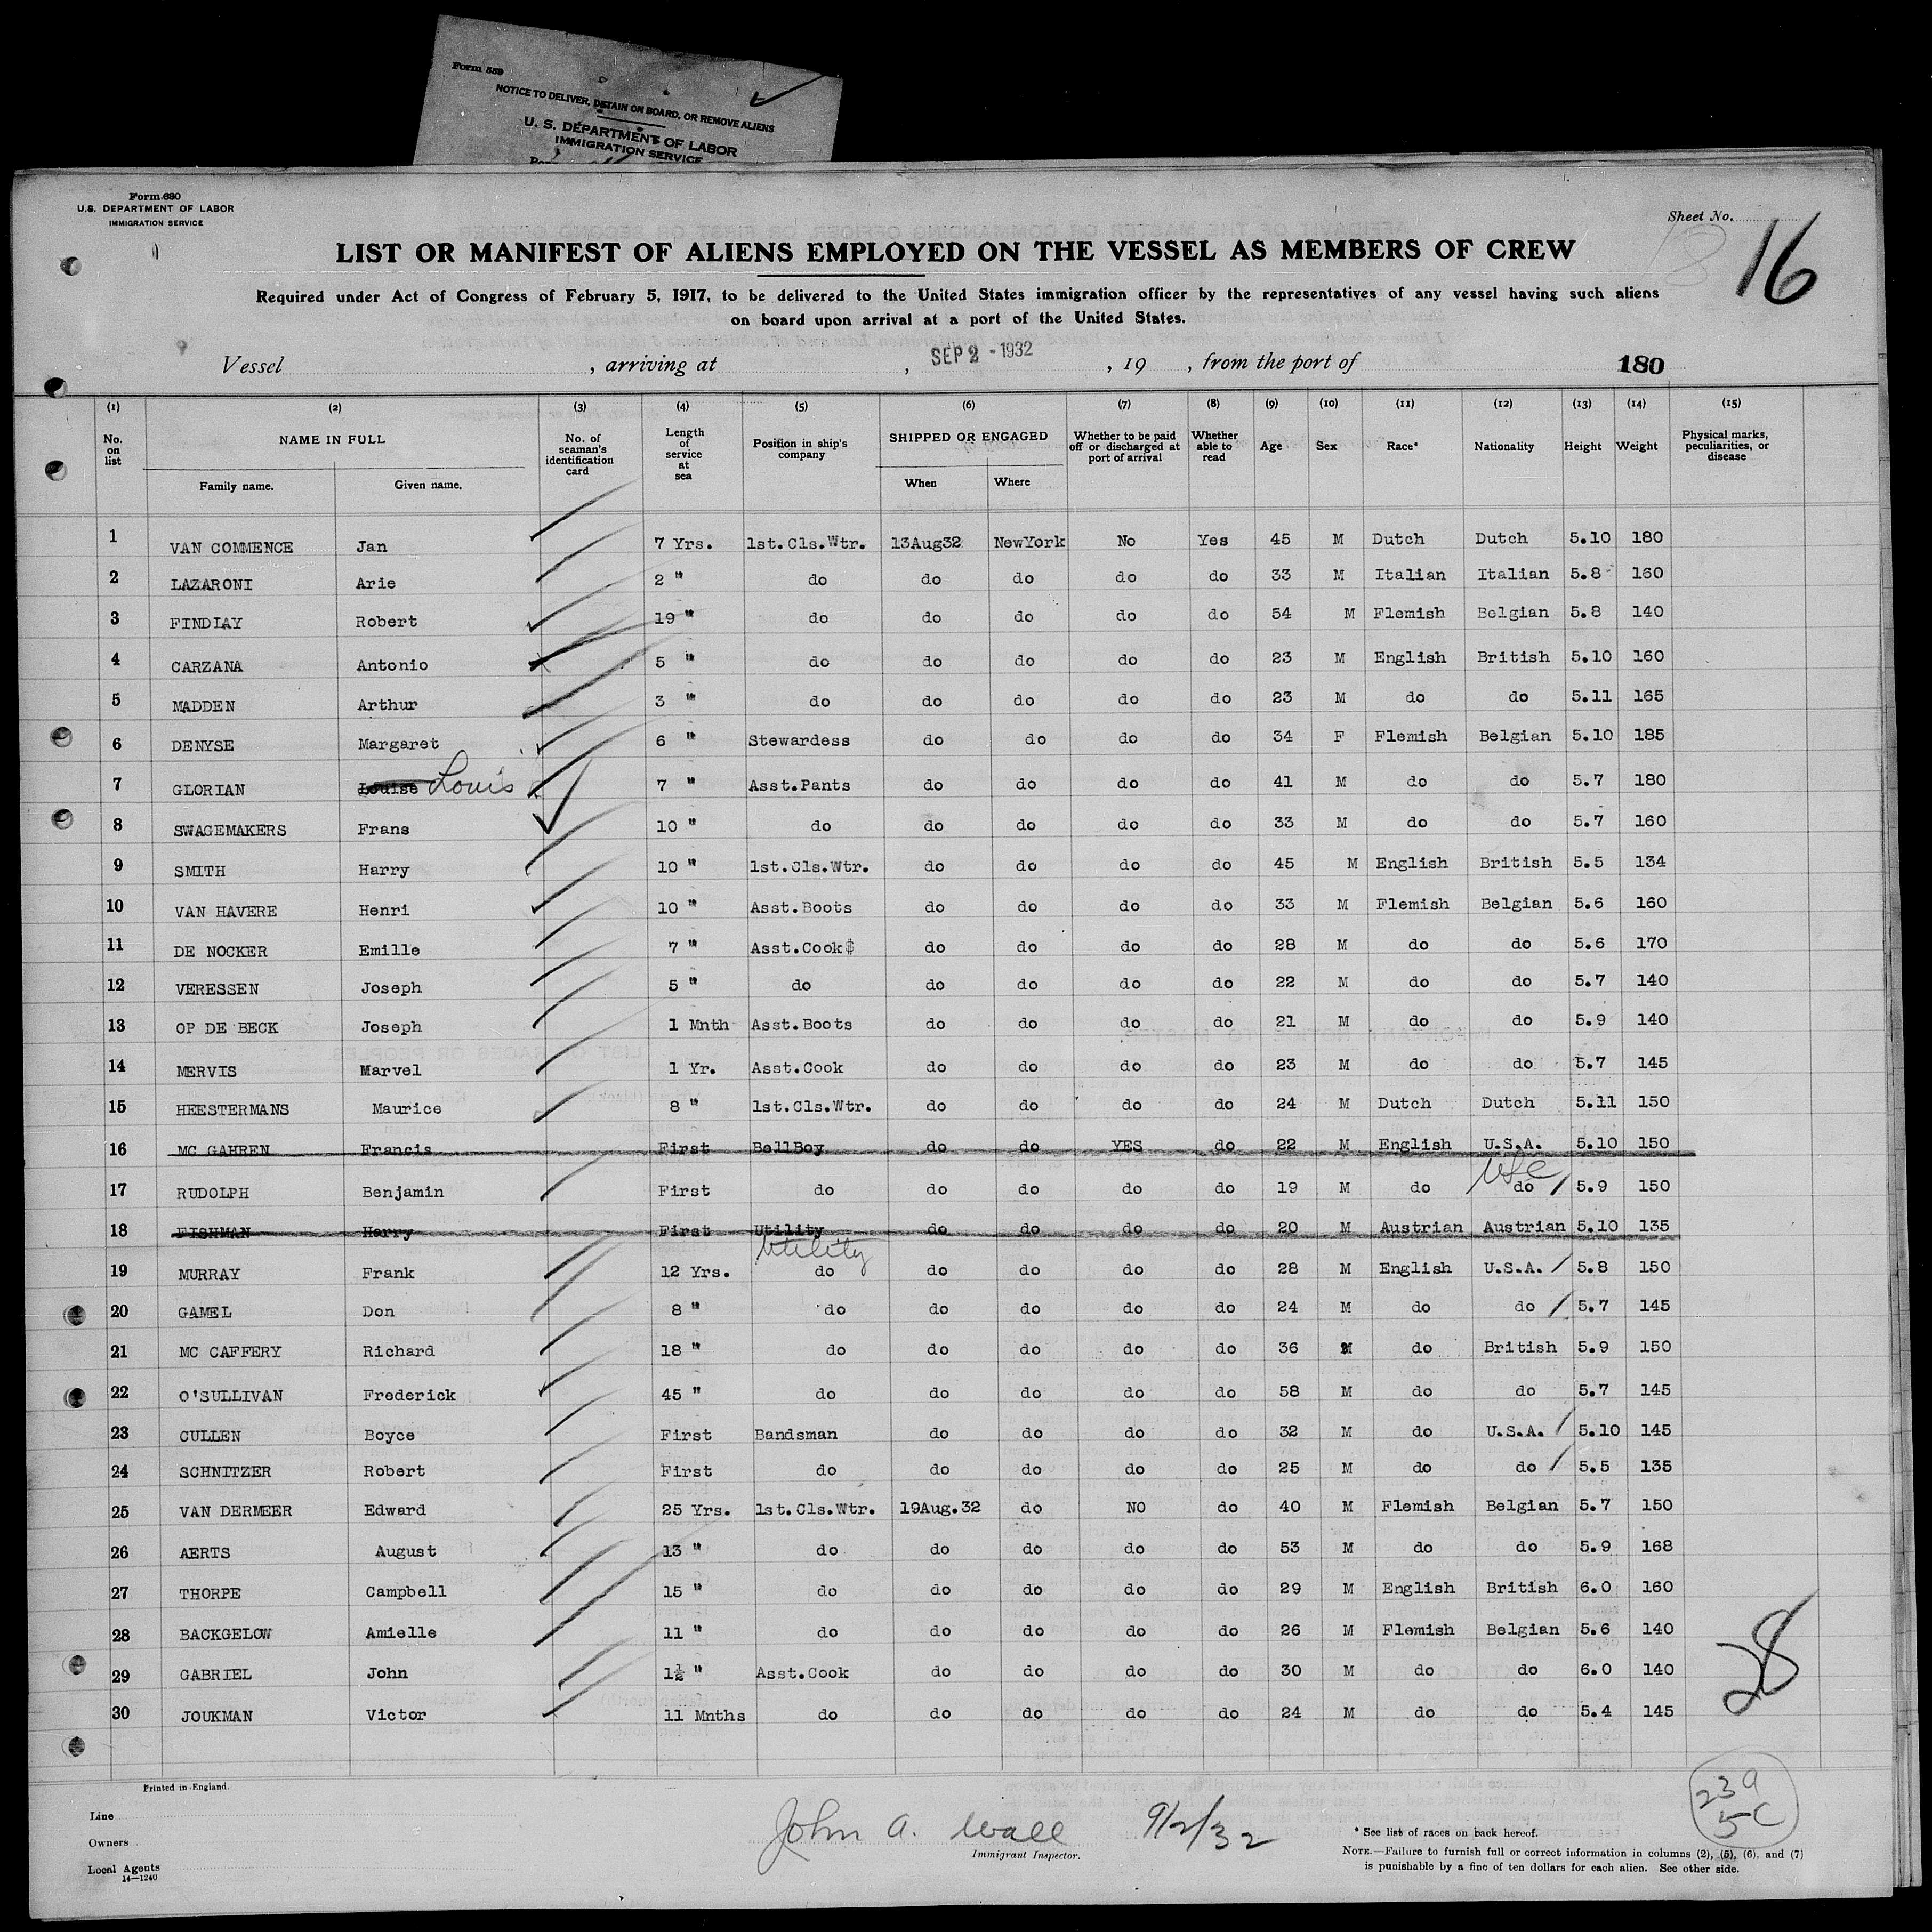 Form 559
NOTICE TO DELIVER, DETAIN ON BOARD, OR REMOVE ALIENS
U. S. DEPARTMENT OF LABOR
IMMIGRATION SERVICE
Form 680
U.S. DEPARTMENT OF LABOR
IMMIGRATION SERVICE
Sheet No.
18 16
LIST OR MANIFEST OF ALIENS EMPLOYED ON THE VESSEL AS MEMBERS OF CREW
Required under Act of Congress of February 5, 1917, to be delivered to the United States immigration officer by the representatives of any vessel having such aliens
on board upon arrival at a port of the United States.
Vessel , arriving at , SEP 2 - 1932 , 19 , from the port of 180
(1) (2) (3) (4) (5) (6) (7) (8) (9) (10) (11) (12) (13) (14) (15)
No. on list NAME IN FULL Family name. Given name. No. of seaman's identification card Length of service at sea Position in ship's company SHIPPED OR ENGAGED When Where Whether to be paid off or discharged at port of arrival Whether able to read Age Sex Race* Nationality Height Weight Physical marks, peculiarities, or disease
1 VAN COMMENCE Jan 7 Yrs. 1st.Cls.Wtr. 13Aug32 NewYork No Yes 45 M Dutch Dutch 5.10 180
2 LAZARONI Arie 2 " do do do do do 33 M Italian Italian 5.8 160
3 FINDLAY Robert 19 " do do do do do 54 M Flemish Belgian 5.8 140
4 CARZANA Antonio 5 " do do do do do 23 M English British 5.10 160
5 MADDEN Arthur 3 " do do do do do 23 M do do 5.11 165
6 DENYSE Margaret 6 " Stewardess do do do do 34 F Flemish Belgian 5.10 185
7 GLORIAN Louise Louis 7 " Asst.Pants do do do do 41 M do do 5.7 180
8 SWAGEMAKERS Frans 10 " do do do do do 33 M do do 5.7 160
9 SMITH Harry 10 " 1st.Cls.Wtr. do do do do 45 M English British 5.5 134
10 VAN HAVERE Henri 10 " Asst.Boots do do do do 33 M Flemish Belgian 5.6 160
11 DE NOCKER Emille 7 " Asst.Cook do do do do 28 M do do 5.6 170
12 VERESSEN Joseph 5 " do do do do do 22 M do do 5.7 140
13 OP DE BECK Joseph 1 Mnth Asst.Boots do do do do 21 M do do 5.9 140
14 MERVIS Marvel 1 Yr. Asst.Cook do do do do 23 M do do 5.7 145
15 HEESTERMANS Maurice 8 " 1st.Cls.Wtr. do do do do 24 M Dutch Dutch 5.11 150
16 MC GAHREN Francis First BellBoy do do YES do 22 M English U.S.A. 5.10 150
USC
17 RUDOLPH Benjamin First do do do do do 19 M do do / 5.9 150
18 FISHMAN Harry First Utility do do do do 20 M Austrian Austrian 5.10 135
Utility
19 MURRAY Frank 12 Yrs. do do do do do 28 M English U.S.A. / 5.8 150
20 GAMEL Don 8 " do do do do do 24 M do do / 5.7 145
21 MC CAFFERY Richard 18 " do do do do do 36 M do British 5.9 150
22 O'SULLIVAN Frederick 45 " do do do do do 58 M do do 5.7 145
23 CULLEN Boyce First Bandsman do do do do 32 M do U.S.A. / 5.10 145
24 SCHNITZER Robert First do do do do do 25 M do do / 5.5 135
25 VAN DERMEER Edward 25 Yrs. 1st.Cls.Wtr. 19Aug.32 do NO do 40 M Flemish Belgian 5.7 150
26 AERTS August 13 " do do do do do 53 M do do 5.9 168
27 THORPE Campbell 15 " do do do do do 29 M English British 6.0 160
28 BACKGELOW Amielle 11 " do do do do do 26 M Flemish Belgian 5.6 140
29 GABRIEL John 1½ " Asst.Cook do do do do 30 M do do 6.0 140
30 JOUKMAN Victor 11 Mnths do do do do do 24 M do do 5.4 145
28
Printed in England.
Line
Owners
Local Agents
14—1240
John A. Wall 9/2/32
Immigrant Inspector.
23 a
5 C
* See list of races on back hereof.
NOTE.—Failure to furnish full or correct information in columns (2), (5), (6), and (7)
is punishable by a fine of ten dollars for each alien. See other side.